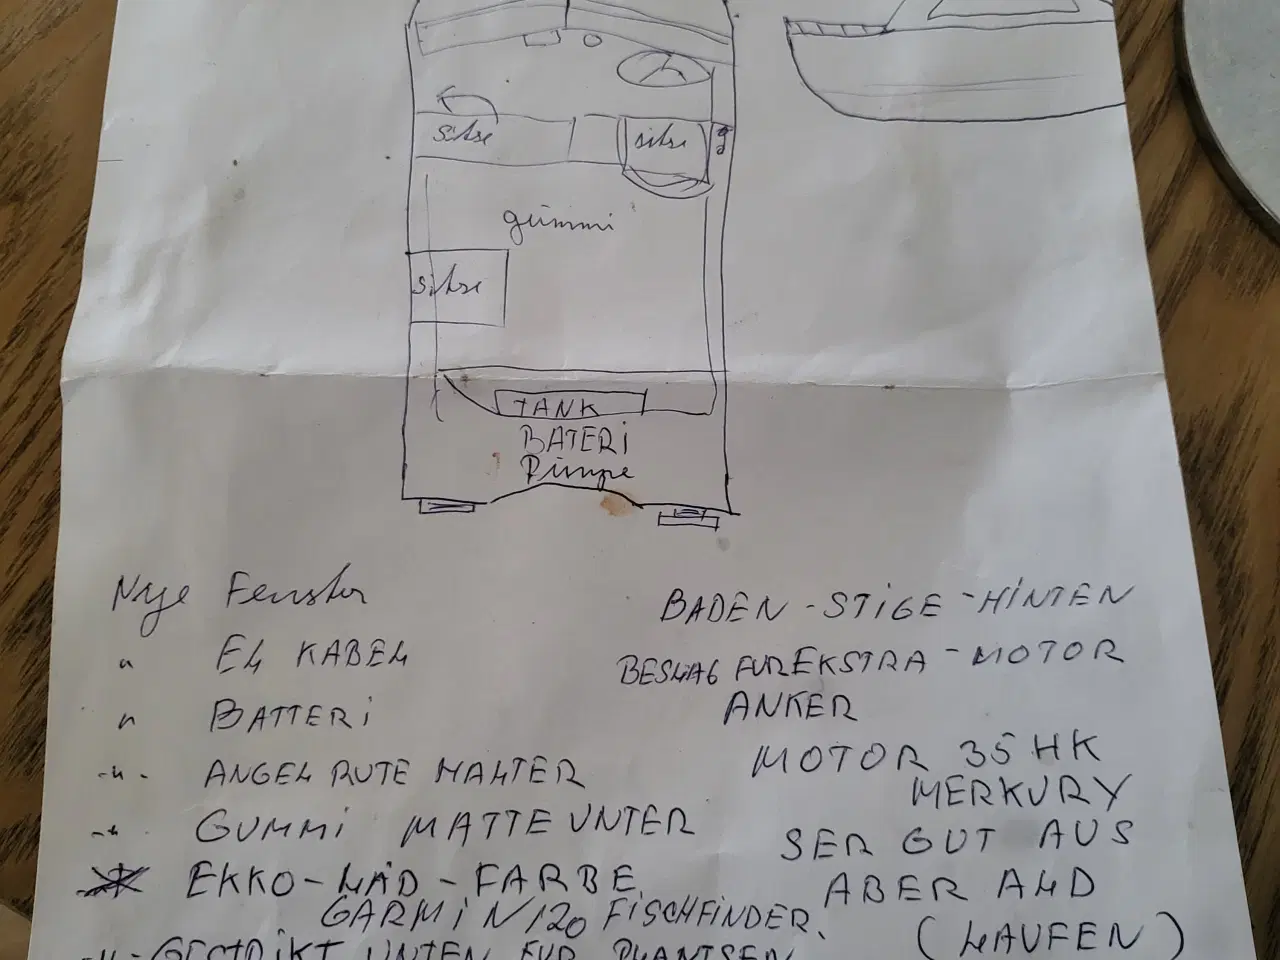 sitse
sitse
gümmi
sitse
TANK
BATERi
Pümpe
Nye Fenster
" EL KABEL
" BATTERi
-"- ANGEL RUTE HALTER
-"- GUMMi MATTE UNTER
EKKO-LÅD-FARBE
GARMiN 120 FiSCHFiNDER.
-"- GESTRiKT UNTEN FUR PLANTSEN
BADEN-STiGE-HiNTEN
BESLAG FUR EKSTRA-MOTOR
ANKER
MOTOR 35 HK
MERKURY
SER GUT AUS
ABER ALD
(LAUFEN)